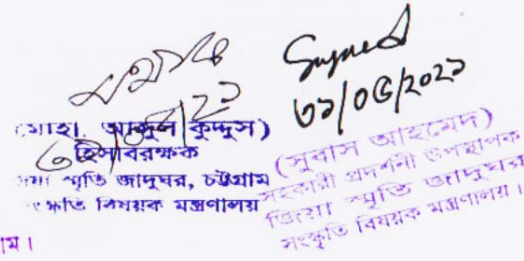 Signed
৩১/০৫/২০২১
(মোহা. আব্দুল কুদ্দুস)
হিসাবরক্ষক
জিয়া স্মৃতি জাদুঘর, চট্টগ্রাম
সংস্কৃতি বিষয়ক মন্ত্রণালয়
(সুবাস আহমেদ)
সহকারী প্রদর্শনী উপস্থাপক
জিয়া স্মৃতি জাদুঘর
সংস্কৃতি বিষয়ক মন্ত্রণালয়।